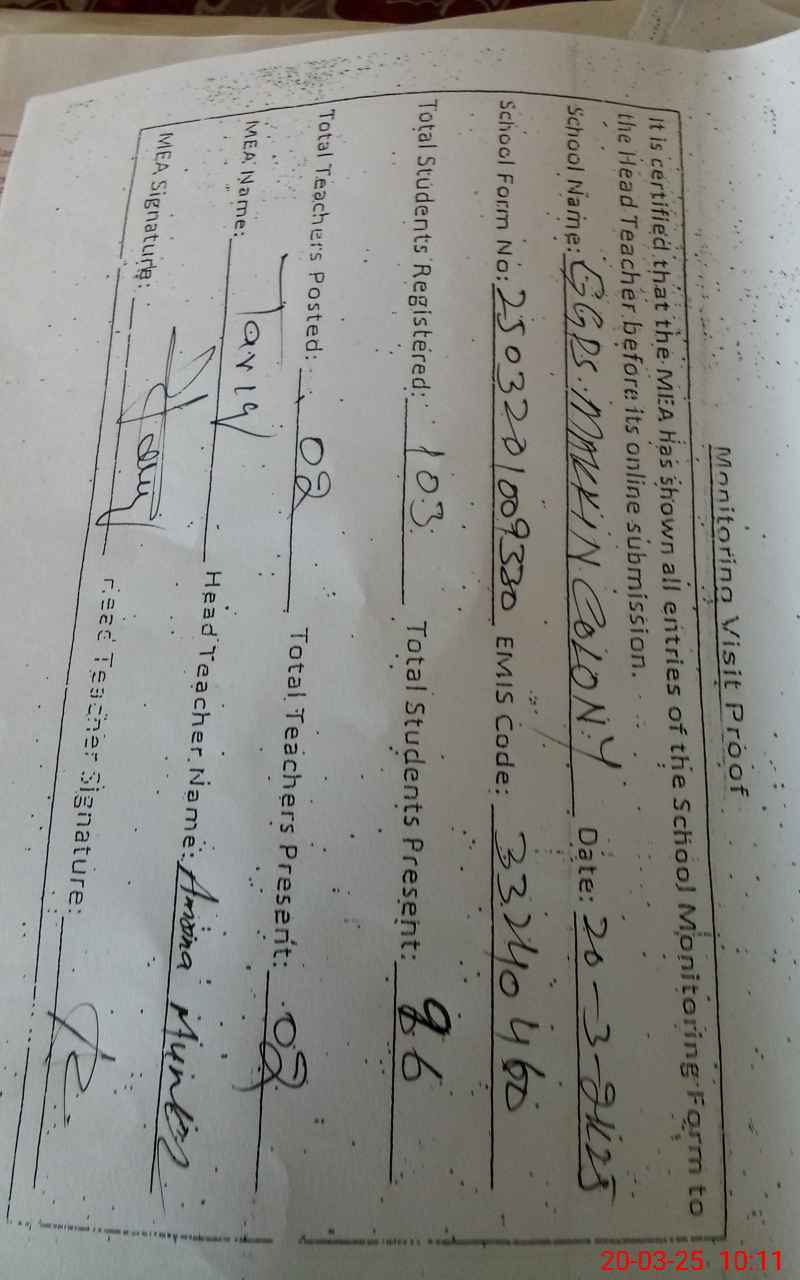 Monitoring Visit Proof
It is certified that the MEA has shown all entries of the School Monitoring Form to
the Head Teacher before its online submission.
School Name: GGPS. MAKKIN COLONY Date: 20-3-2025
School Form No: 2503201009330 EMIS Code: 33240460
Total Students Registered: 103 Total Students Present: 86
Total Teachers Posted: 02 Total Teachers Present: 02
MEA Name: Tariq Head Teacher Name: Amina
MEA Signature: Head Teacher Signature:
20-03-25 10:11